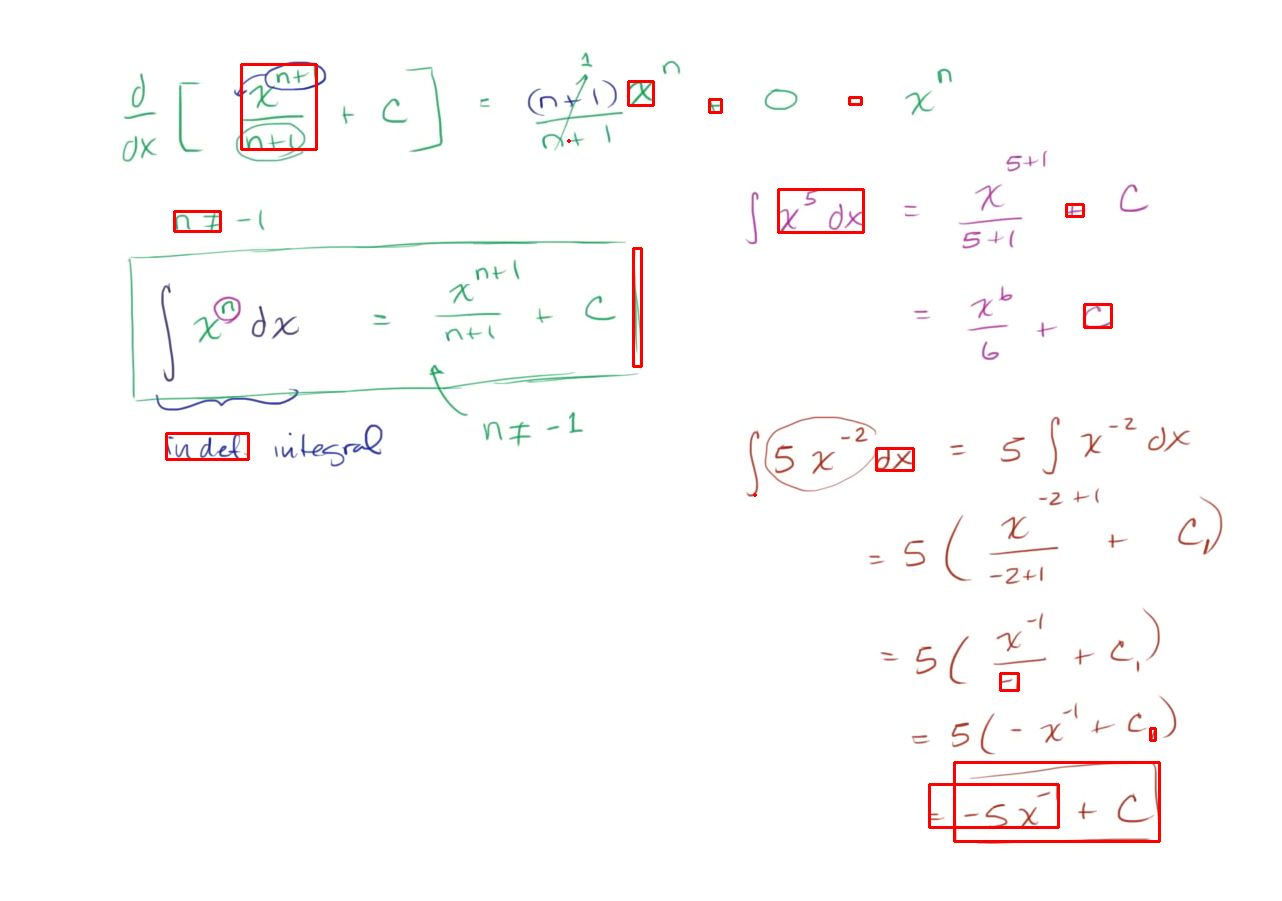 d/dx [ x^(n+1)/(n+1) + C ] = (n+1)/(n+1) x^n + 0 = x^n
1
n ≠ -1
∫ x^n dx = x^(n+1)/(n+1) + C
n ≠ -1
indef. integral
∫ x^5 dx = x^(5+1)/(5+1) + C
= x^6/6 + C
∫ 5 x^(-2) dx = 5 ∫ x^(-2) dx
= 5 ( x^(-2+1)/(-2+1) + C₁ )
= 5 ( x^(-1)/- + C₁ )
= 5 ( - x^(-1) + C₁ )
= -5x^(-1) + C